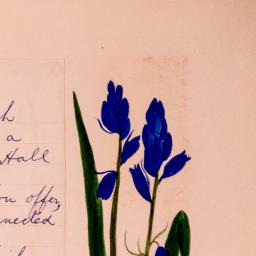 h
a
Hall
ou offer,
nnected